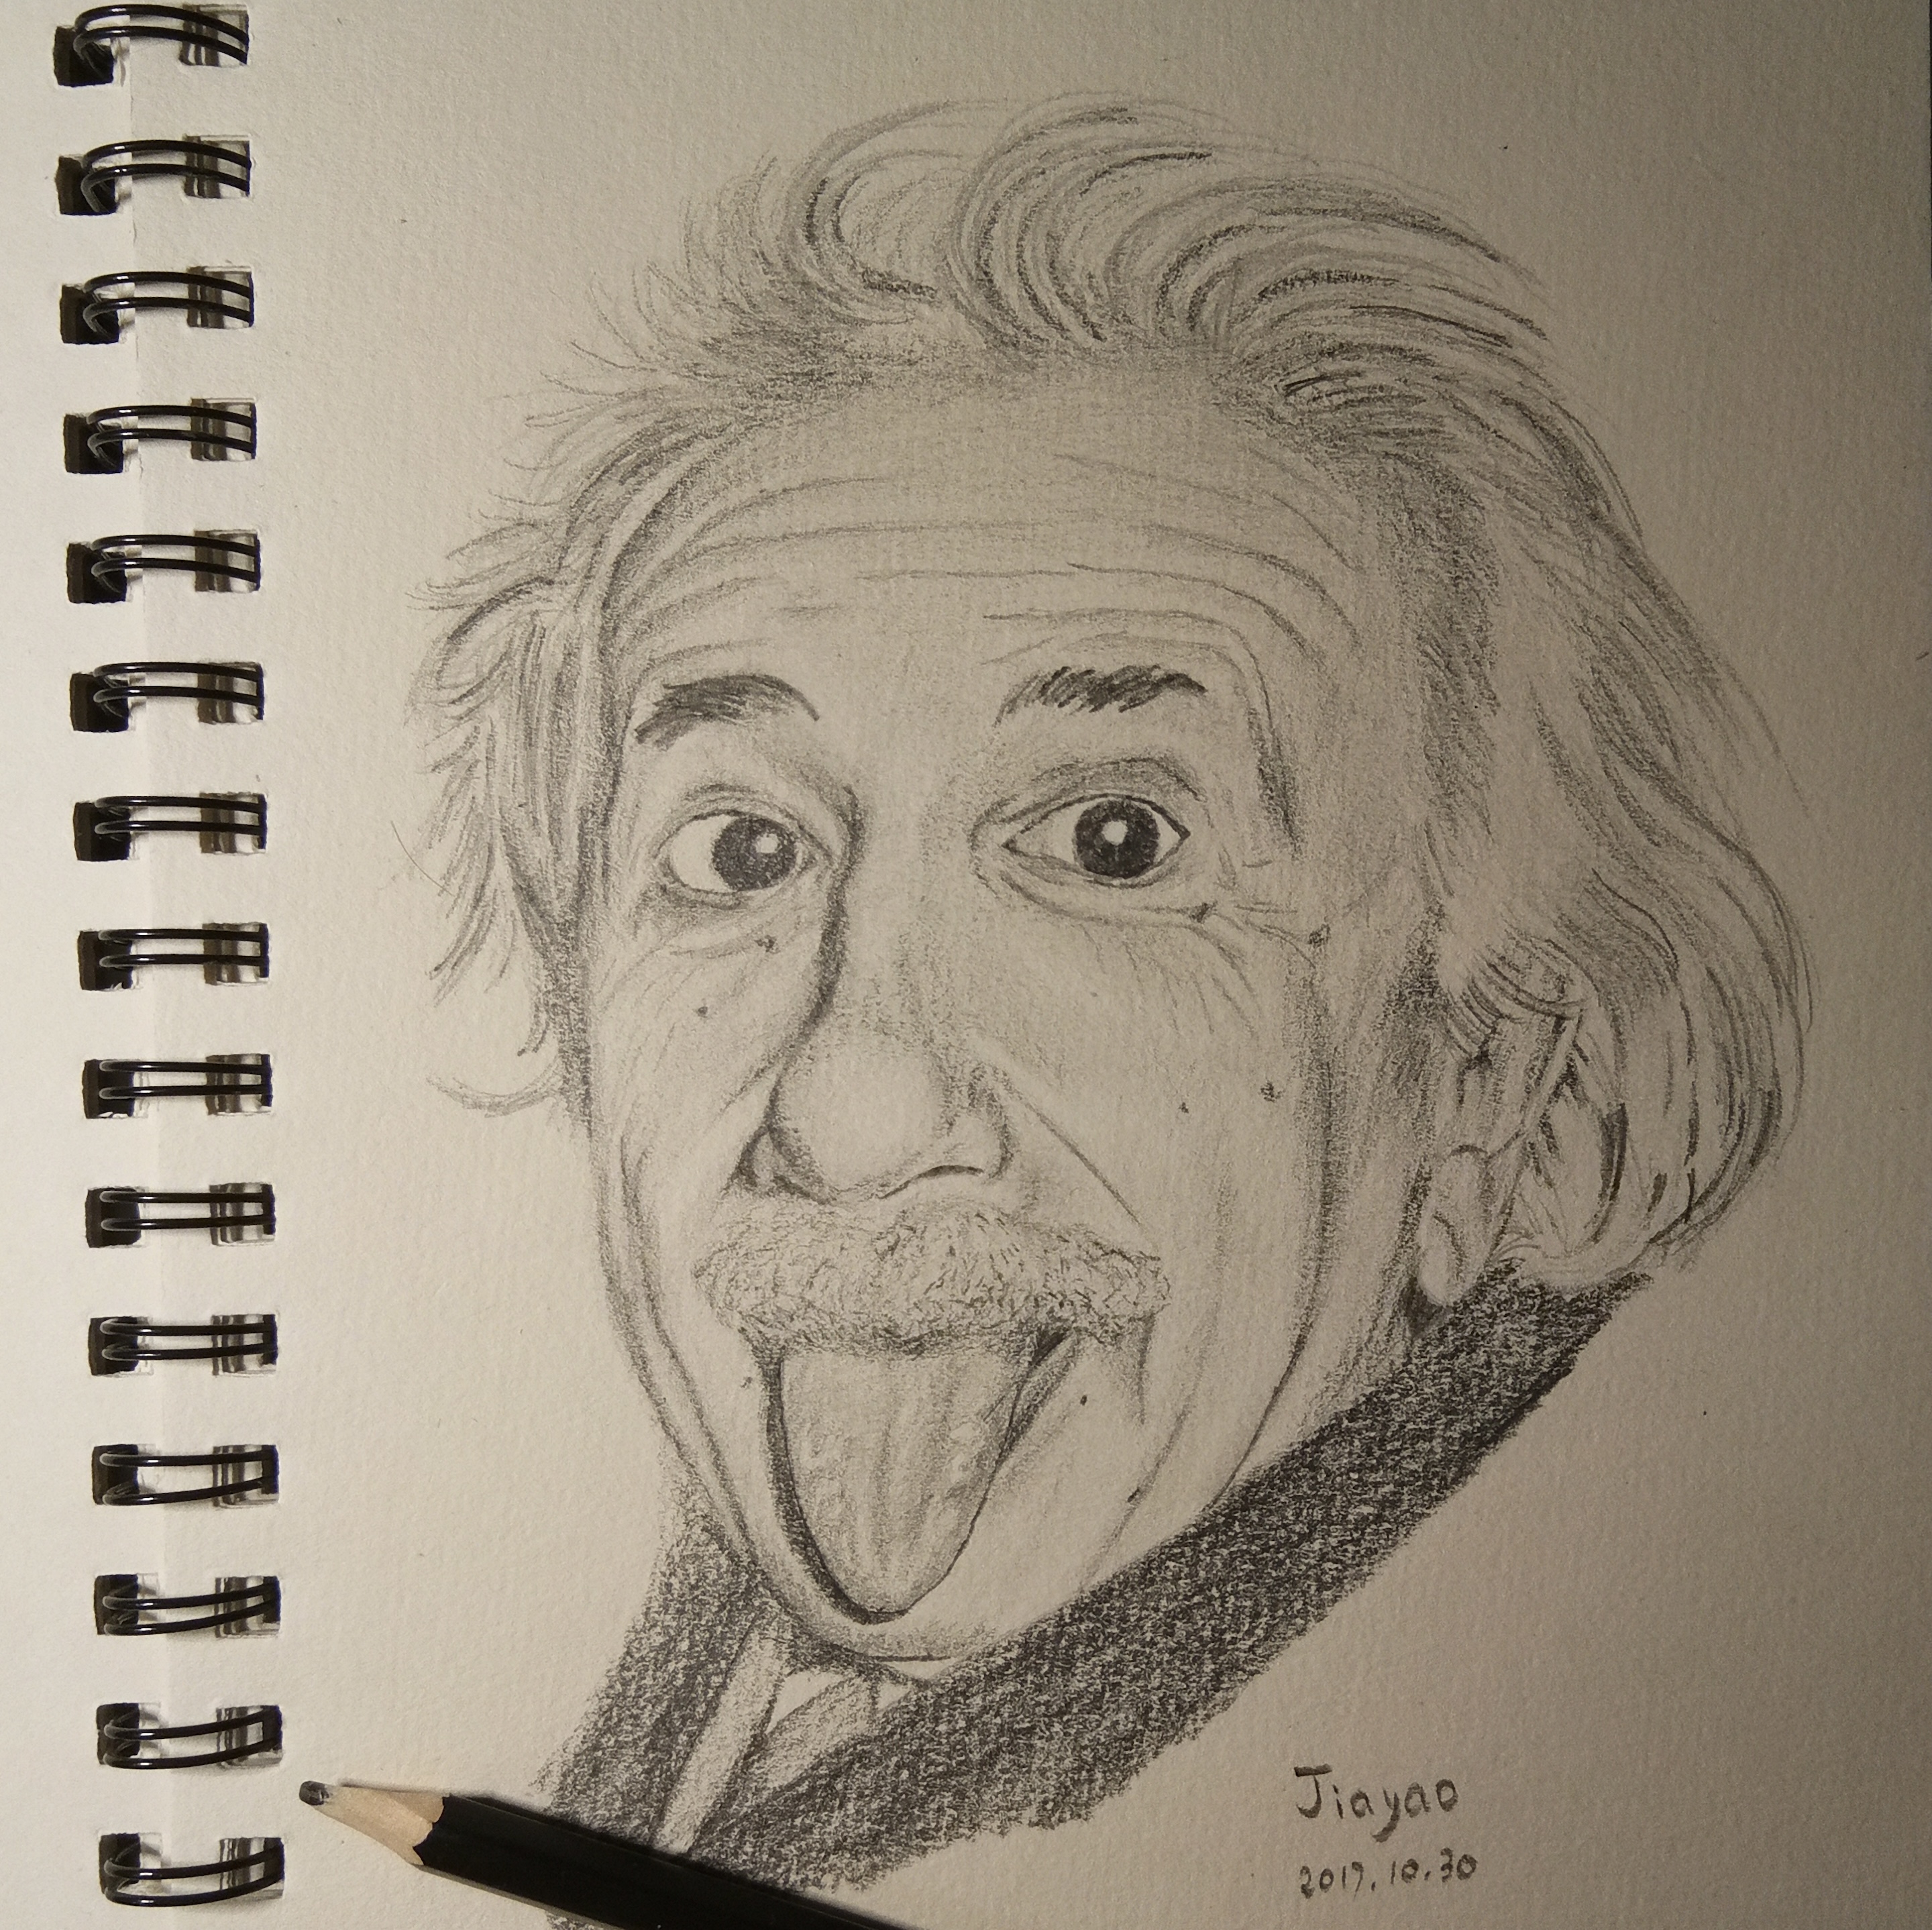 Jiayao
2017.10.30